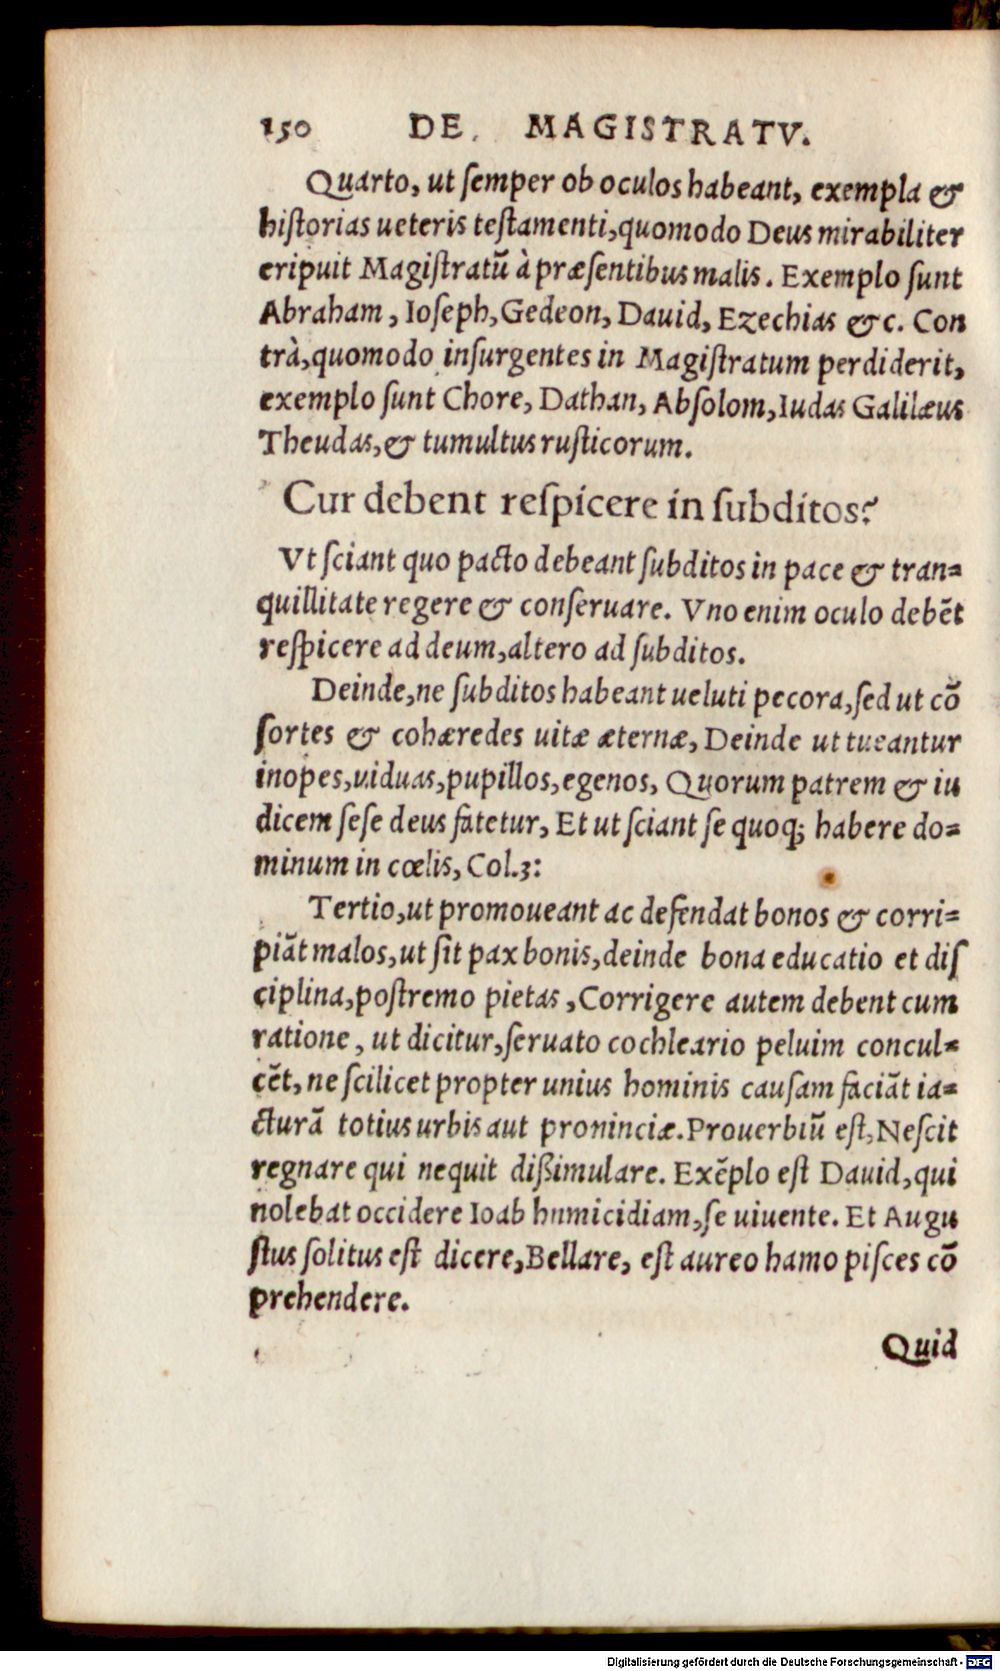 150 DE. MAGISTRATV.
Quarto, ut ſemper ob oculos habeant, exempla &
hiſtorias ueteris teſtamenti, quomodo Deus mirabiliter
eripuit Magiſtratū à præſentibus malis. Exemplo ſunt
Abraham, Ioſeph, Gedeon, Dauid, Ezechias &c. Con
trà, quomodo inſurgentes in Magiſtratum perdiderit,
exemplo ſunt Chore, Dathan, Abſolom, Iudas Galilæus
Theudas, & tumultus ruſticorum.
Cur debent reſpicere in ſubditos?
Vt ſciant quo pacto debeant ſubditos in pace & tran=
quillitate regere & conſeruare. Vno enim oculo debēt
reſpicere ad deum, altero ad ſubditos.
Deinde, ne ſubditos habeant ueluti pecora, ſed ut cō
ſortes & cohæredes uitæ æternæ, Deinde ut tueantur
inopes, uiduas, pupillos, egenos, Quorum patrem & iu
dicem ſeſe deus fatetur, Et ut ſciant ſe quoq; habere do=
minum in cœlis, Col.3:
Tertio, ut promoueant ac defendat bonos & corri=
piāt malos, ut ſit pax bonis, deinde bona educatio et diſ
ciplina, poſtremo pietas, Corrigere autem debent cum
ratione, ut dicitur, ſeruato cochleario peluim concul=
cēt, ne ſcilicet propter unius hominis cauſam faciāt ia=
cturā totius urbis aut proninciæ. Prouerbiū eſt, Neſcit
regnare qui nequit dißimulare. Exēplo eſt Dauid, qui
nolebat occidere Ioab humicidiam, ſe uiuente. Et Augu
ſtus ſolitus eſt dicere, Bellare, eſt aureo hamo piſces cō
prehendere.
Quid
Digitalisierung gefördert durch die Deutsche Forschungsgemeinschaft - DFG